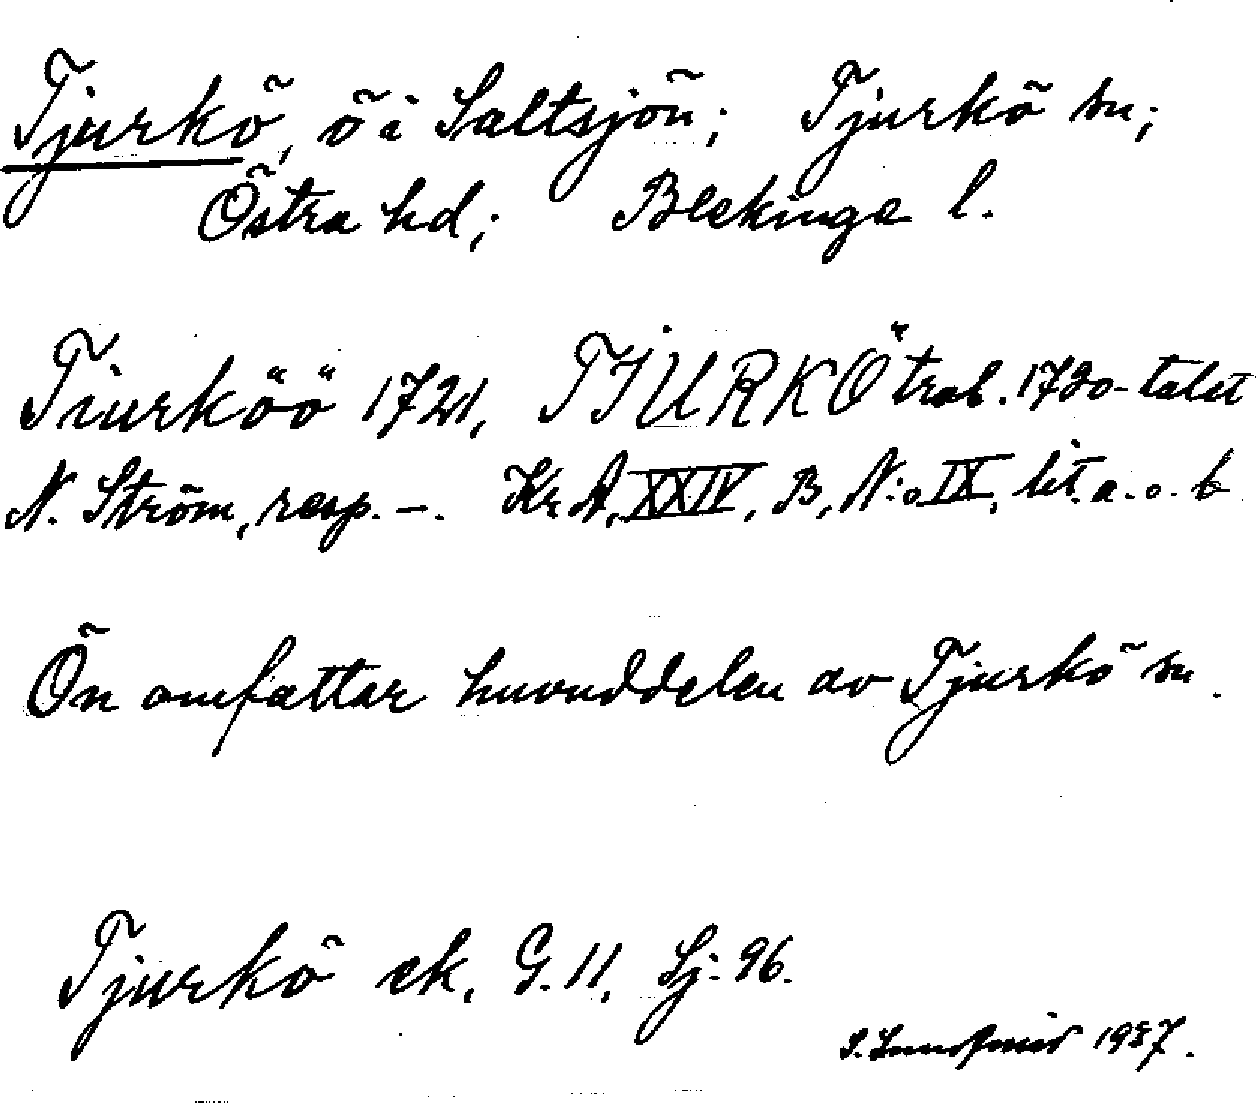 Tjurkö, ö i Saltsjön; Tjurkö sn;
Östra hd; Blekinge l.
Tiurköö 1721, TIURKÖ trol. 1720-talet
N. Ström, resp. –. Kr. A, XXIV, B, N:o IX, lit. a. o. b
Ön omfattar huvuddelen av Tjurkö sn.
Tjurkö ek. G. 11, Sj: 96.
1937.